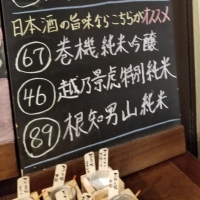 日本酒の旨味ならこちらがオススメ
67 巻機純米吟醸
46 越乃景虎特別純米
89 根知男山純米